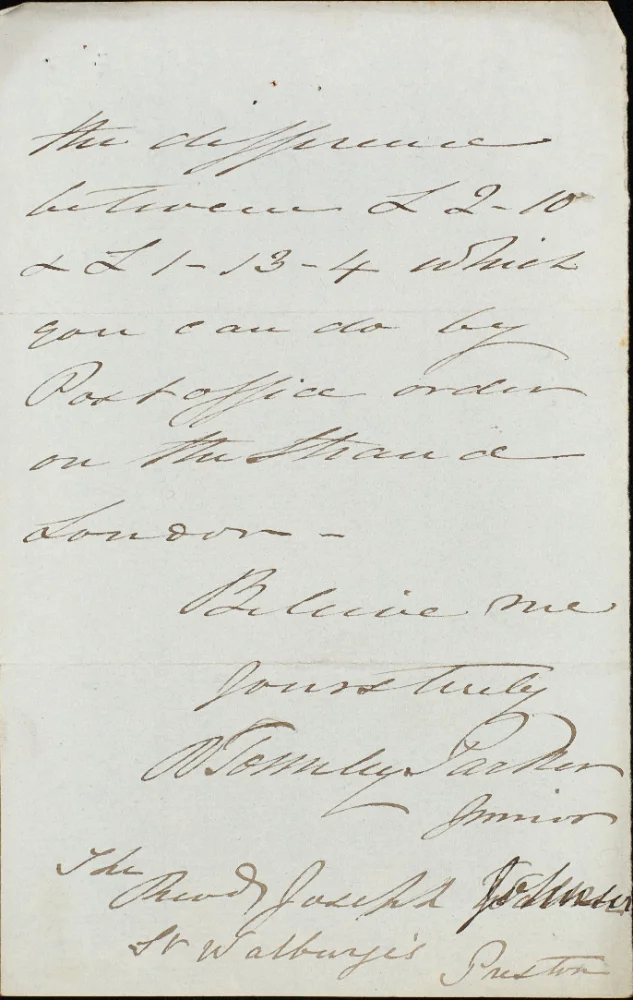 the difference
between £ 2-10
& £ 1-13-4 which
you can do by
Post office order
on the Strand
London -
Believe me
yours truly
R Townley Parker
Junior
The
Revd Joseph Johnson
St Walburge's Preston